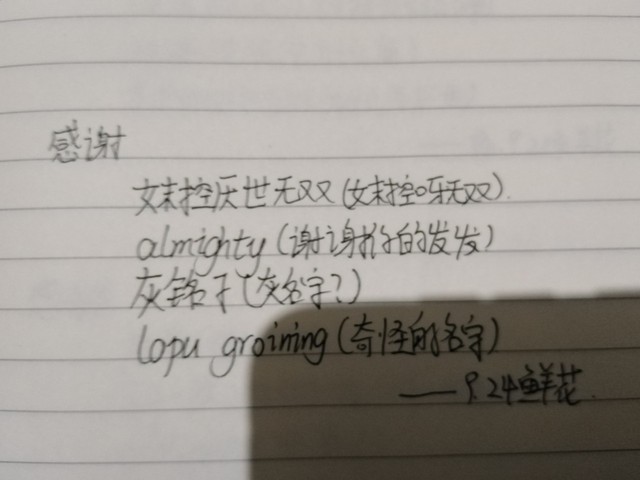 感谢
妹控厌世无双(妹控呀无双)
almighty(谢谢你的发发)
灰铭子(灰名字?)
lopu groining(奇怪的名字)
——9.24鲜花